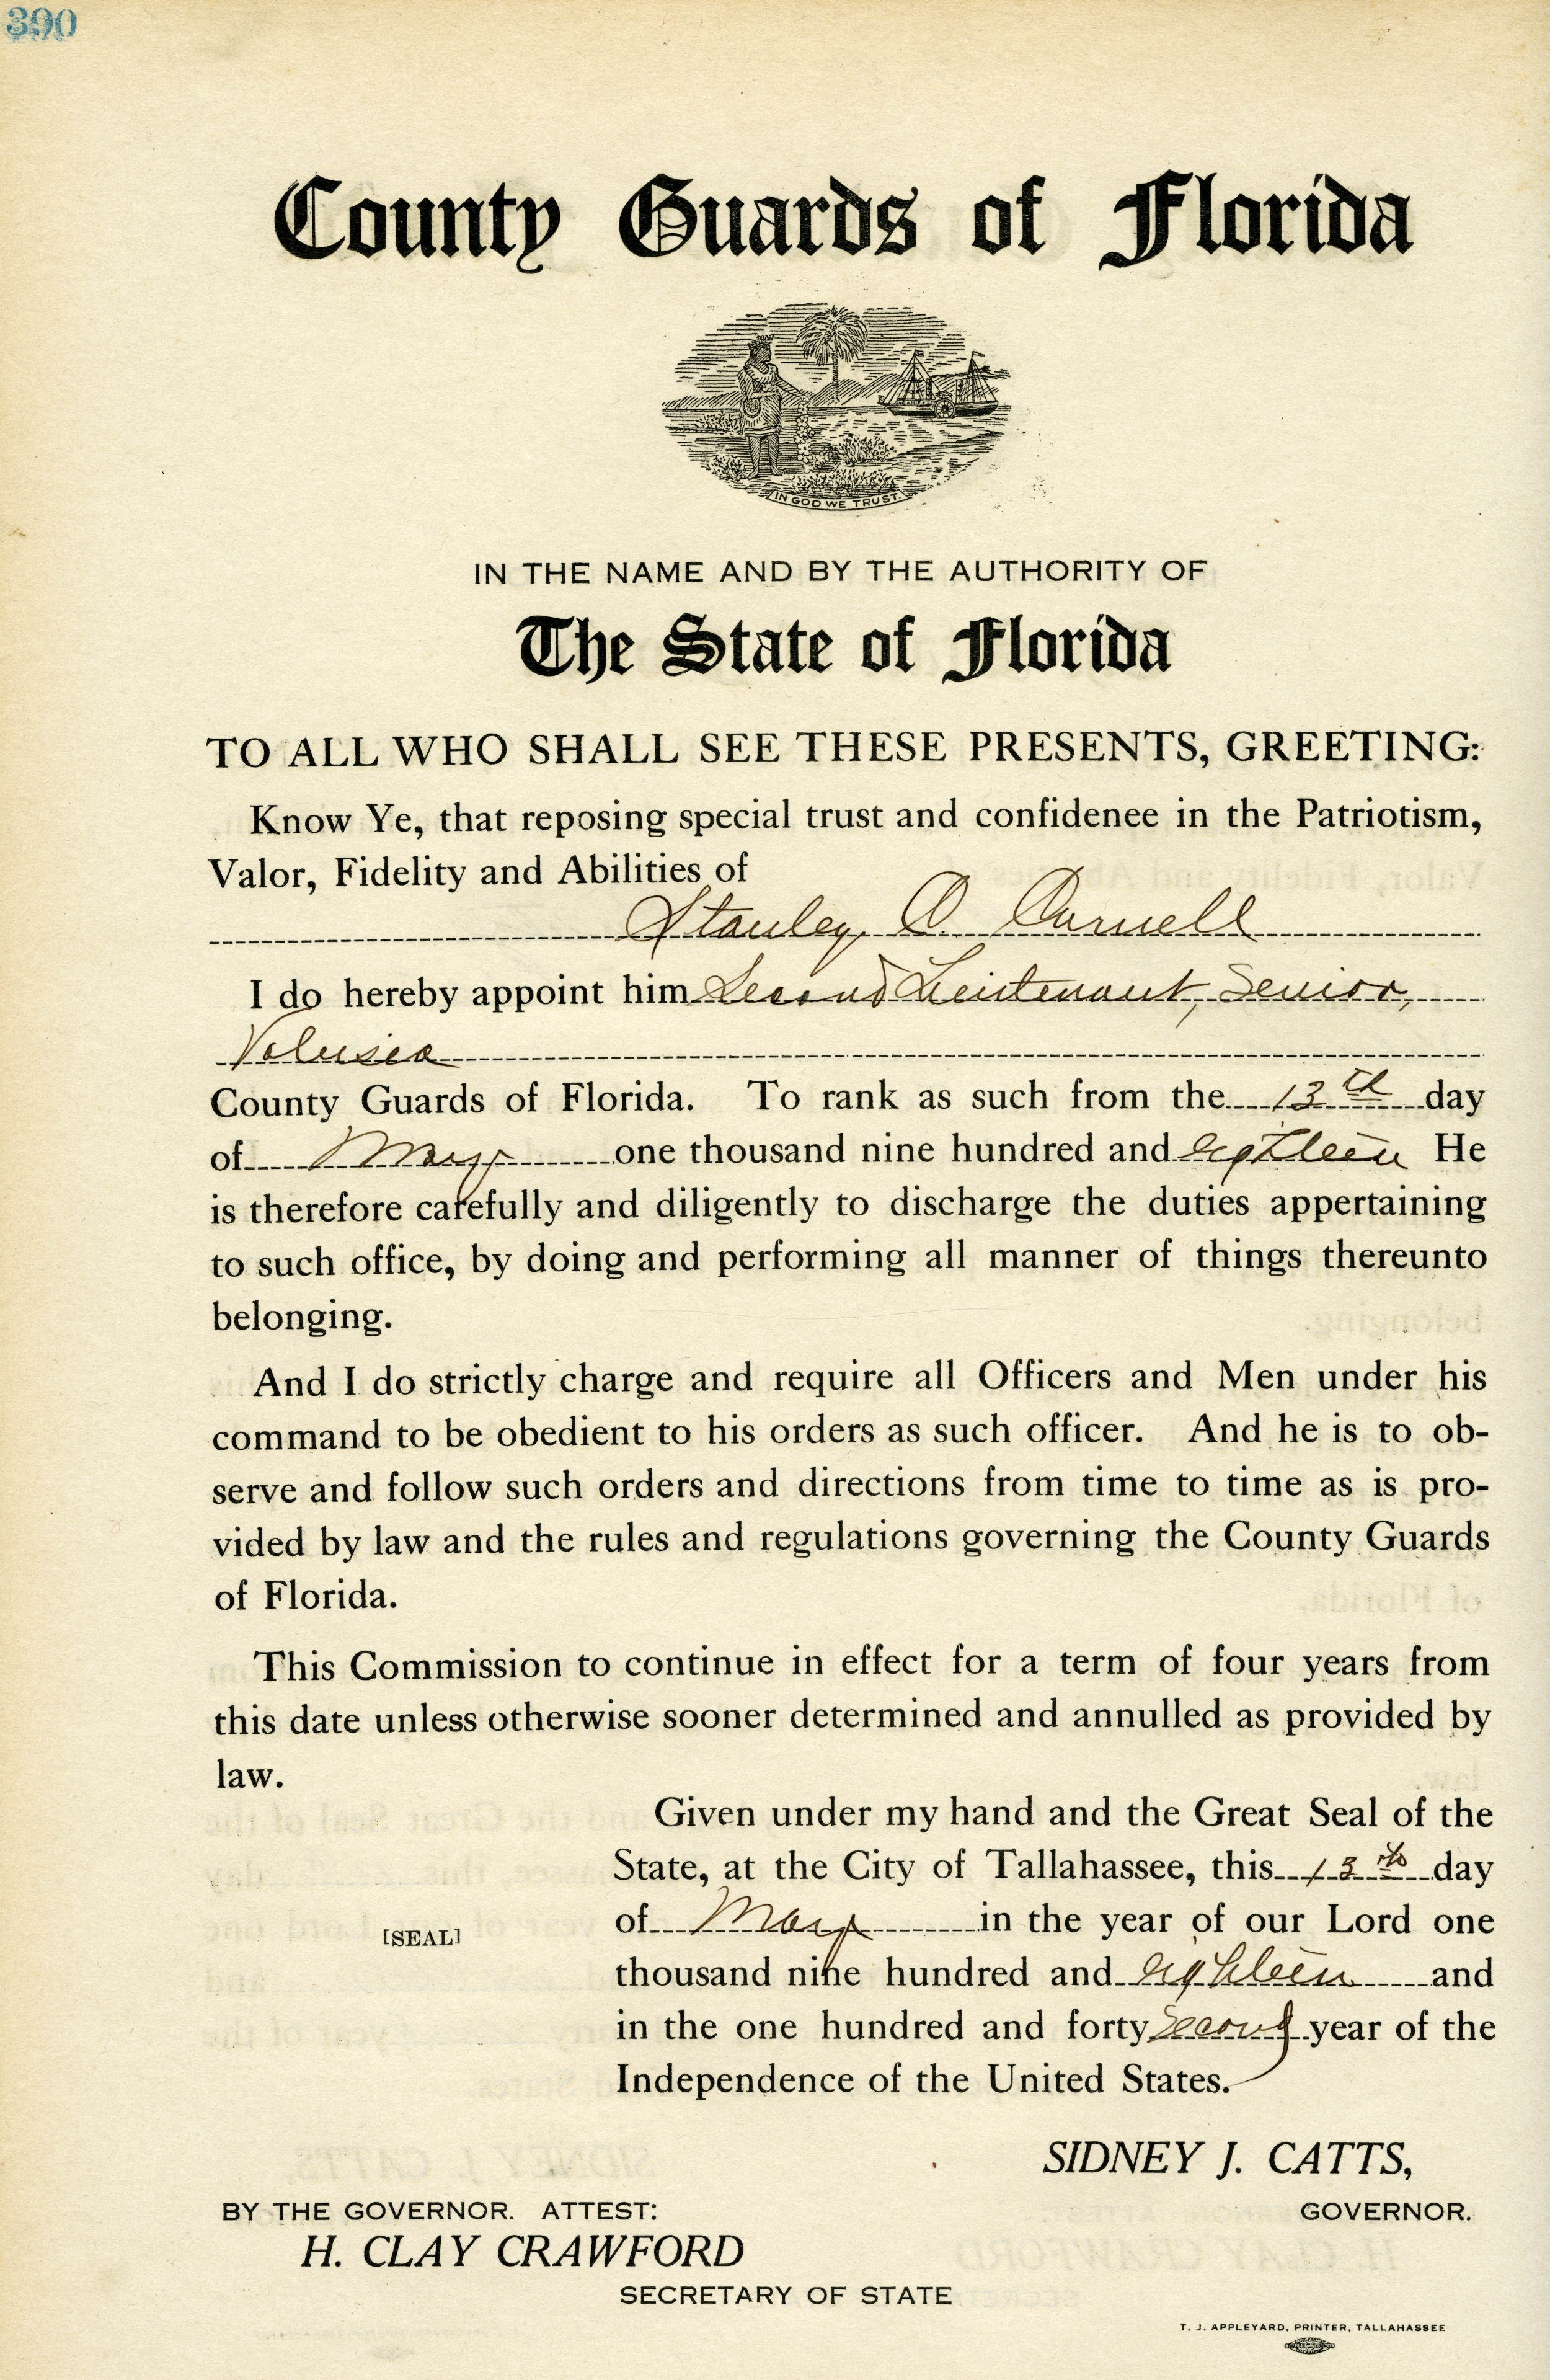 390
County Guards of Florida
IN GOD WE TRUST.
IN THE NAME AND BY THE AUTHORITY OF
The State of Florida
TO ALL WHO SHALL SEE THESE PRESENTS, GREETING:
Know Ye, that reposing special trust and confidenee in the Patriotism,
Valor, Fidelity and Abilities of
Stanley
I do hereby appoint him Second Lieutenant, Senior,
Volusia
County Guards of Florida. To rank as such from the 13th day
of May one thousand nine hundred and eighteen He
is therefore carefully and diligently to discharge the duties appertaining
to such office, by doing and performing all manner of things thereunto
belonging.
And I do strictly charge and require all Officers and Men under his
command to be obedient to his orders as such officer. And he is to ob-
serve and follow such orders and directions from time to time as is pro-
vided by law and the rules and regulations governing the County Guards
of Florida.
This Commission to continue in effect for a term of four years from
this date unless otherwise sooner determined and annulled as provided by
law.
Given under my hand and the Great Seal of the
State, at the City of Tallahassee, this 13th day
of May in the year of our Lord one
[SEAL]
thousand nine hundred and eighteen and
in the one hundred and forty second year of the
Independence of the United States.
SIDNEY J. CATTS,
BY THE GOVERNOR. ATTEST: GOVERNOR.
H. CLAY CRAWFORD
SECRETARY OF STATE
T. J. APPLEYARD, PRINTER, TALLAHASSEE